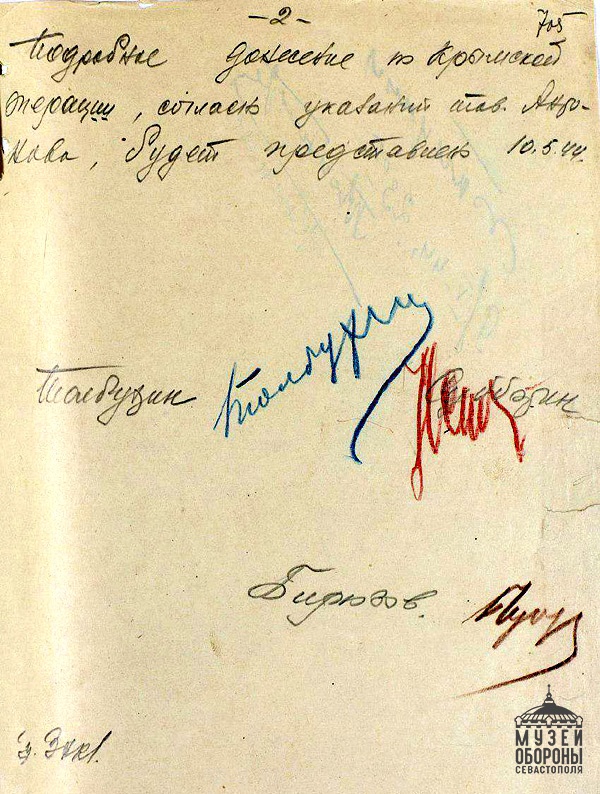 - 2 -
705
Подробное донесение по Крымской
операции, согласно указаний тов. Анто-
нова, будет представлено 10.5.44.
Толбухин
Толбухин
Субботин
Бирюзов.
МУЗЕЙ
ОБОРОНЫ
СЕВАСТОПОЛЯ